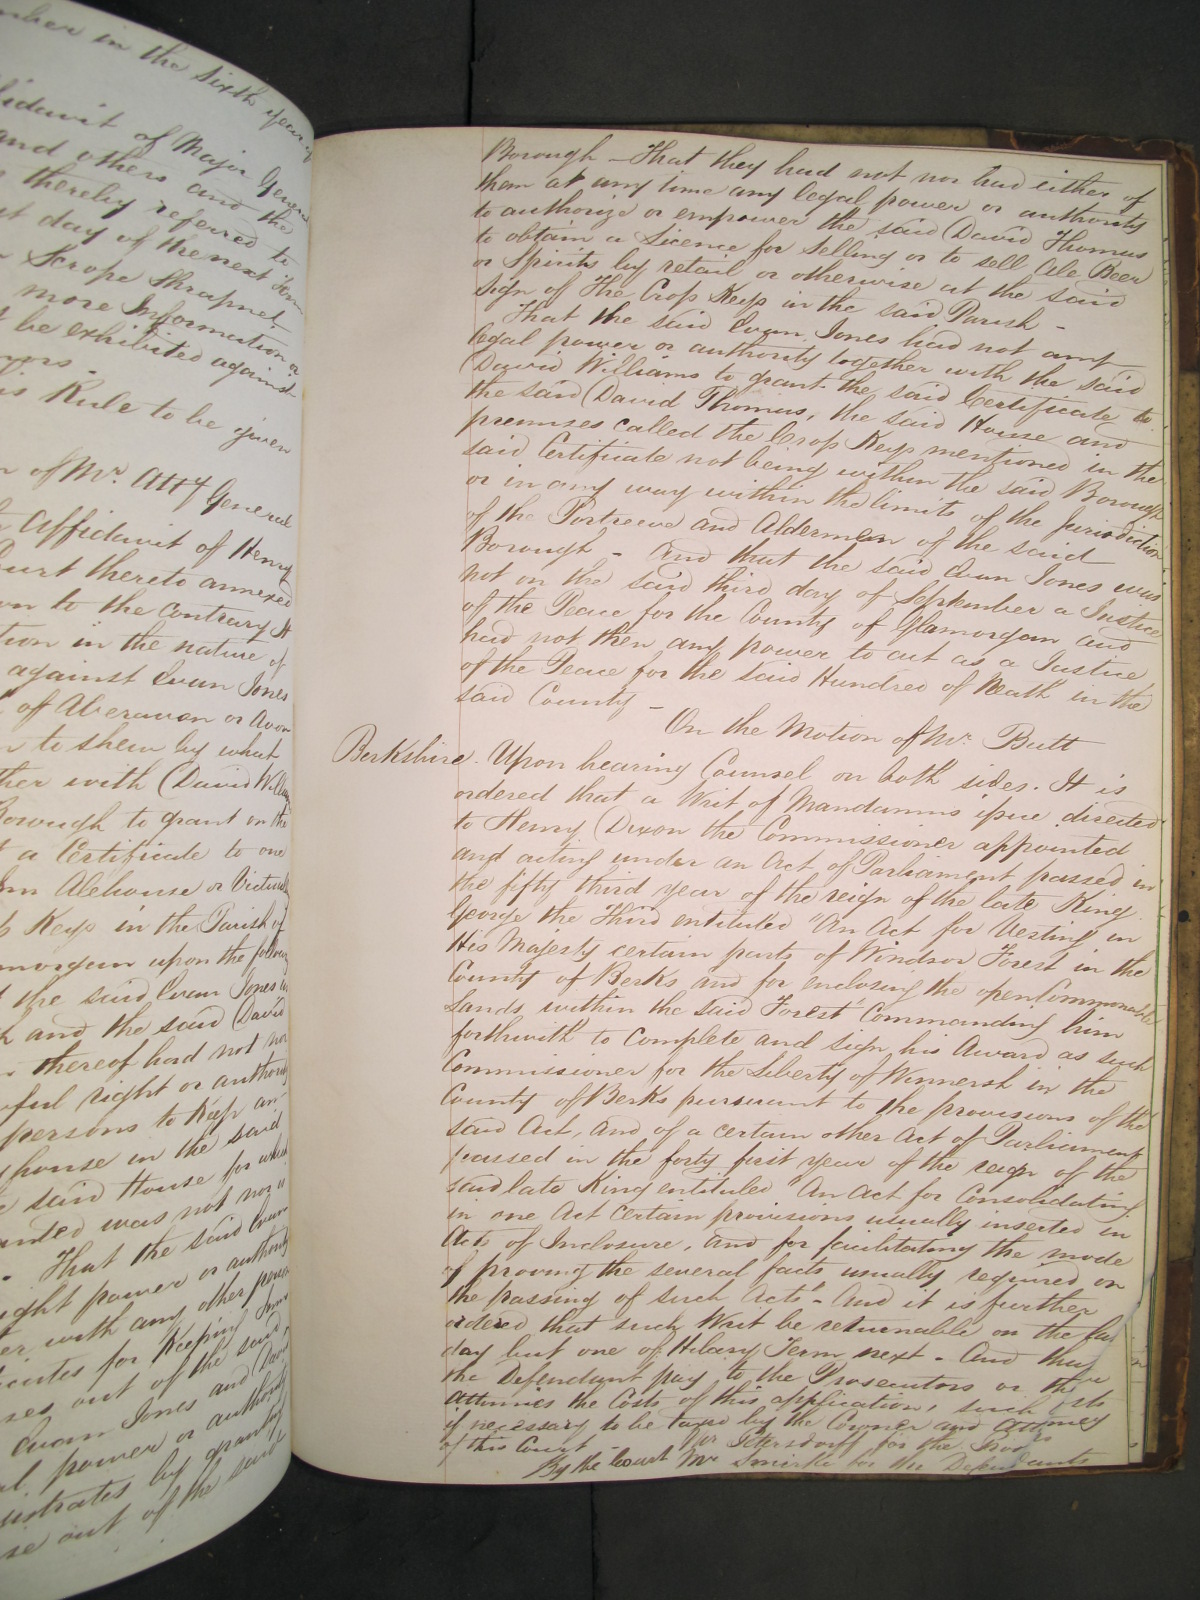 mber in the Sixth year of
fidavit of Major General
and others and the
thereby referred to
day of the next Term
Scrope Shrapnel
more Information or
be exhibited against
is Rule to be given
of Mr. Atty General
Affidavit of Henry
ourt thereto annexed
on to the Contrary It
tion in the nature of
against Evan Jones
of Aberavon or Avon
to shew by what
ther with David Willia
Borough to grant on the
a Certificate to one
an Alehouse or Victual
Keys in the Parish of
morgan upon the following
the said Evan Jones
and the said David
thereof had not nor
ful right or authority
persons to Keep an
house in the said
said House for which
anted was not nor
That the said Evan
ight power or authority
er with any other person
cates for Keeping Inns
ses out of the said
Evan Jones and David
al power or authority
istrates by granting
se out of the said
Borough – That they had not nor had either of
them at any time any legal power or authority
to authorize or empower the said David Thomas
to obtain a Licence for selling or to sell Ale Beer
or Spirits by retail or otherwise at the said
Sign of The Crop Keys in the said Parish –
That the said Evan Jones had not any
legal power or authority together with the said
David Williams to grant the said Certificate to
the said David Thomas, the said House and
premises called the Crop Keys mentioned in the
said Certificate not being within the said Borough
or in any way within the limits of the Jurisdiction
of the Portreeve and Aldermen of the said
Borough – And that the said Evan Jones was
not on the said third day of September a Justice
of the Peace for the County of Glamorgan and
had not then any power to act as a Justice
of the Peace for the said Hundred of Neath in the
said County –
On the Motion of Mr. Butt
Berkshire. Upon hearing Counsel on both sides. It is
ordered that a Writ of Mandamus issue directed
to Henry Dixon the Commissioner appointed
and acting under an Act of Parliament passed in
the fifty third year of the reign of the late King
George the Third entituled "An Act for Vesting in
His Majesty certain parts of Windsor Forest in the
County of Berks and for enclosing the open Commonable
Lands within the said Forest" Commanding him
forthwith to Complete and sign his Award as such
Commissioner for the Liberty of Winnersh in the
County of Berks pursuant to the provisions of the
said Act, and of a certain other Act of Parliament
passed in the forty first year of the reign of the
said late King entituled "An Act for Consolidating
in one Act Certain provisions usually inserted in
Acts of Inclosure, and for facilitating the mode
of proving the several facts usually required on
the passing of such Acts" – And it is further
ordered that such Writ be returnable on the
day but one of Hilary Term next – And that
the Defendant pay to the Prosecutors or
Attornies the Costs of this application, such
if necessary to be taxed by the Coroner and Attorney
of this Court – Mr Petersdorff for the
By the Court Mr Smirke for the Defendants